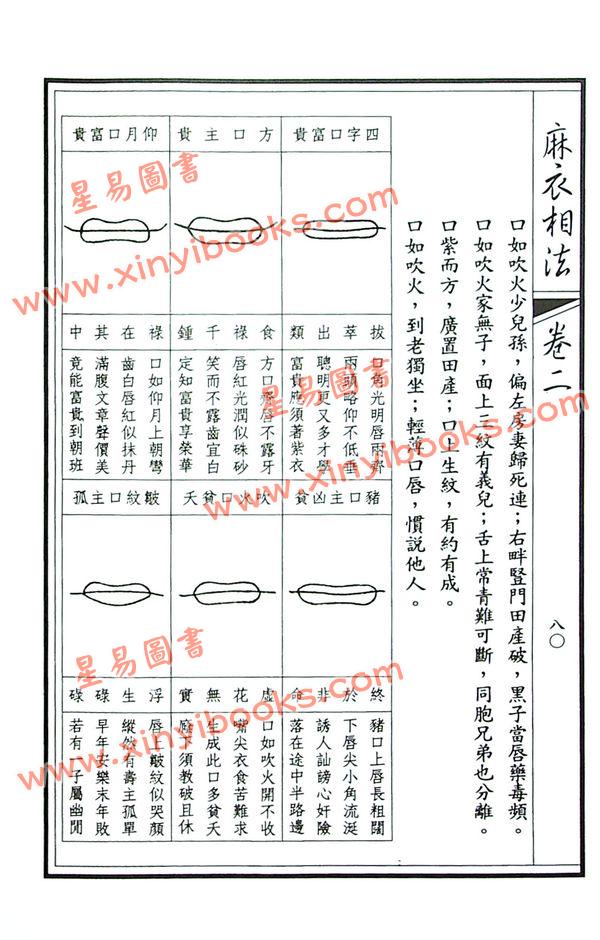 麻衣相法
卷二
八〇
口如吹火少兒孫，偏左房妻歸死連；右畔豎門田產破，黑子當唇藥毒頻。
口如吹火家無子，面上三紋有義兒；舌上常青難可斷，同胞兄弟也分離。
口紫而方，廣置田產；口上生紋，有約有成。
口如吹火，到老獨坐；輕薄口唇，慣說他人。
四字口富貴
拔萃出類
口角光明唇兩齊
兩頭略仰不低垂
聰明更又多才學
富貴應須著紫衣
方口主貴
食祿千鍾
方口齊唇不露牙
唇紅光潤似硃砂
笑而不露齒宜白
定知富貴享榮華
仰月口富貴
祿在其中
口如仰月上朝彎
齒白唇紅似抹丹
滿腹文章聲價美
竟能富貴到朝班
豬口主凶貧
終於非命
豬口上唇長粗闊
下唇尖小角流涎
誘人訕謗心奸險
落在途中半路邊
吹火口貧夭
虛花無實
口如吹火開不收
嘴尖衣食苦難求
生成此口多貧夭
廕下須教破且休
皺紋口主孤
浮生碌碌
唇上皺紋似哭顏
縱然有壽主孤單
早年安樂末年敗
若有一子屬幽閒
星易圖書
www.xinyibooks.com
星易圖書
www.xinyibooks.com
星易圖書
www.xinyibooks.com